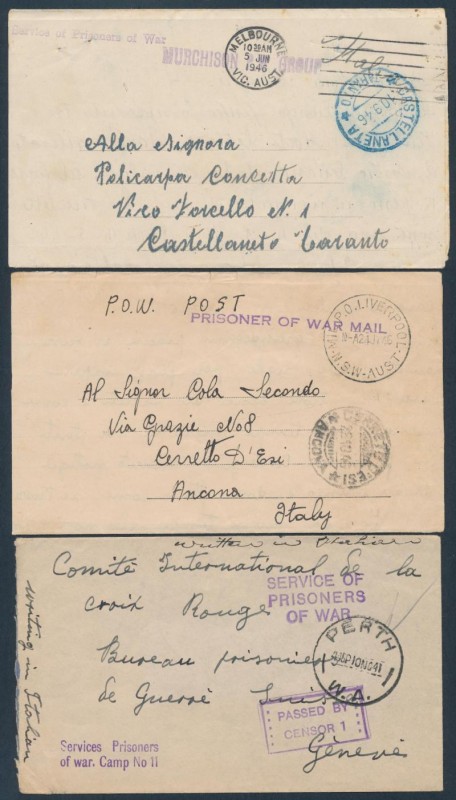 Service of Prisoners of War
MURCHISON GROUP
MELBOURNE
10 30 AM
5 JUN
1946
VIC. AUST.
Italia
CASTELLANETA
Alla Signora
Policarpa Concetta
Vico Torcello N. 1
Castellaneto Taranto
P.O.W. POST
PRISONER OF WAR MAIL
LIVERPOOL
Al Signor Cola Secondo
Via Grazie No 8
Cerretto D'Esi
Ancona
Italy
CERRETO D'ESI
ANCONA
written in Italian
Comité International de la
croix Rouge
SERVICE OF
PRISONERS
OF WAR
Bureau prisonier
de Guerre Suisse
PERTH
W.A.
1
PASSED BY
CENSOR 1
Génevie
Services Prisoners
of war. Camp No 11
writing in Italian